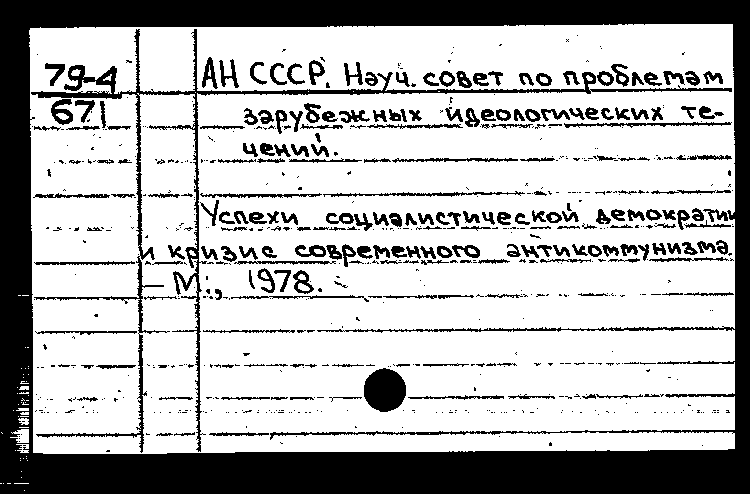 79-4
671
АН СССР. Науч. совет по проблемам
зарубежных идеологических те-
чений.
Успехи социалистической демократии
и кризис современного антикоммунизма.
— М., 1978. —